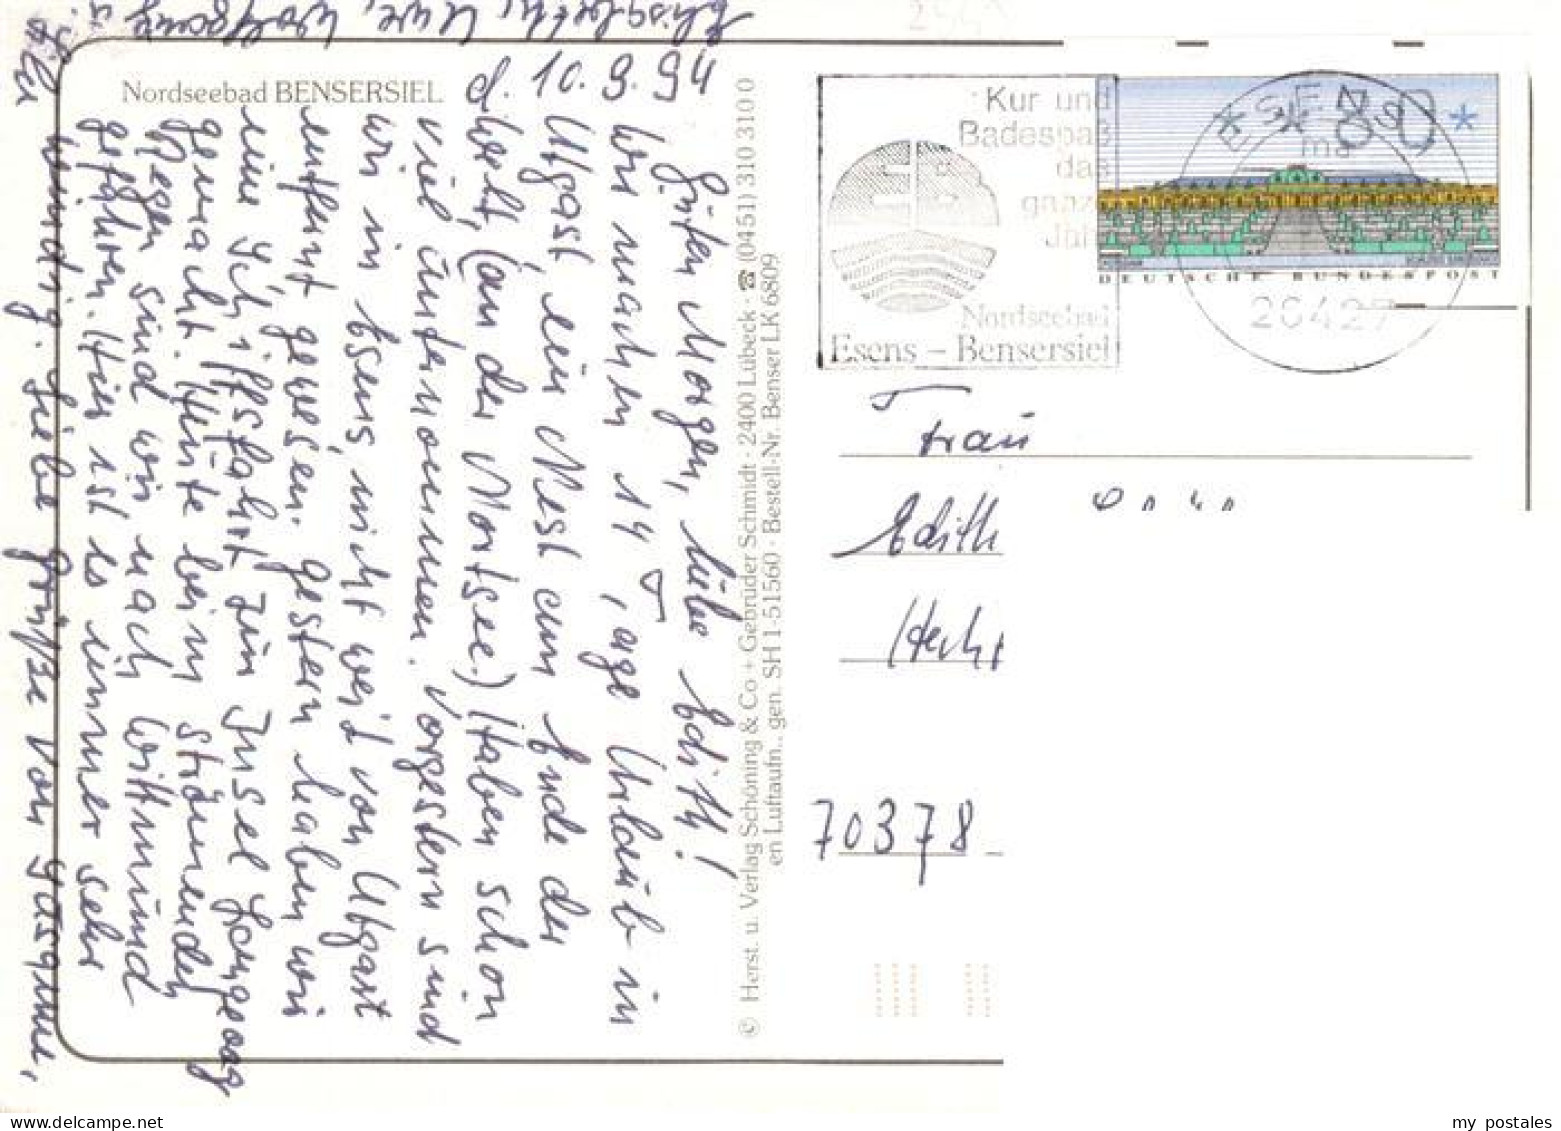 Nordseebad BENSERSIEL
d. 10. 9. 94
Guten Morgen, liebe Edith!
Wir machen 14 Tage Urlaub in
Utgast, ein Nest am Ende der
Welt, (an der Nordsee.) Haben schon
viel unternommen. Vorgestern sind
wir in Esens, nicht weit von Utgast
entfernt gewesen. gestern haben wir
eine Schiffsfahrt zur Insel Langeoog
gemacht. Heute beim strömenden
Regen sind wir nach Wittmund
gefahren. Hier ist es immer sehr
windig. Liebe Grüße von
Elisabeth, Uwe, Wolfgang u.
© Herst. u. Verlag Schöning & Co + Gebrüder Schmidt · 2400 Lübeck · ☎ (0451) 310 310 0
en Luftaufn.. gen. SH 1-51560 · Bestell-Nr. Benser LK 6809
Kur und
Badespaß
das
ganze
Jahr
Nordseebad
Esens – Bensersiel
ESENS
26427
* 80 *
DEUTSCHE BUNDESPOST
Frau
Edith
70378
my postales